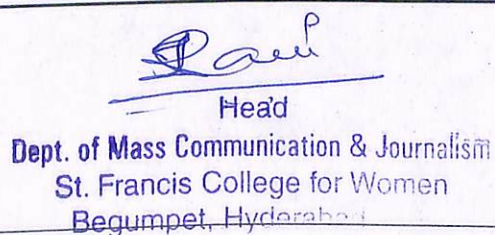 Head
Dept. of Mass Communication & Journalism
St. Francis College for Women
Begumpet, Hyderabad